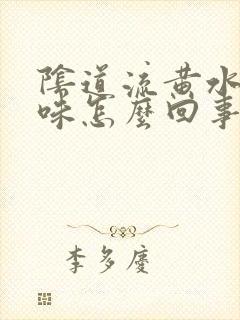 陰道流黃水
味怎麼回事
李多慶